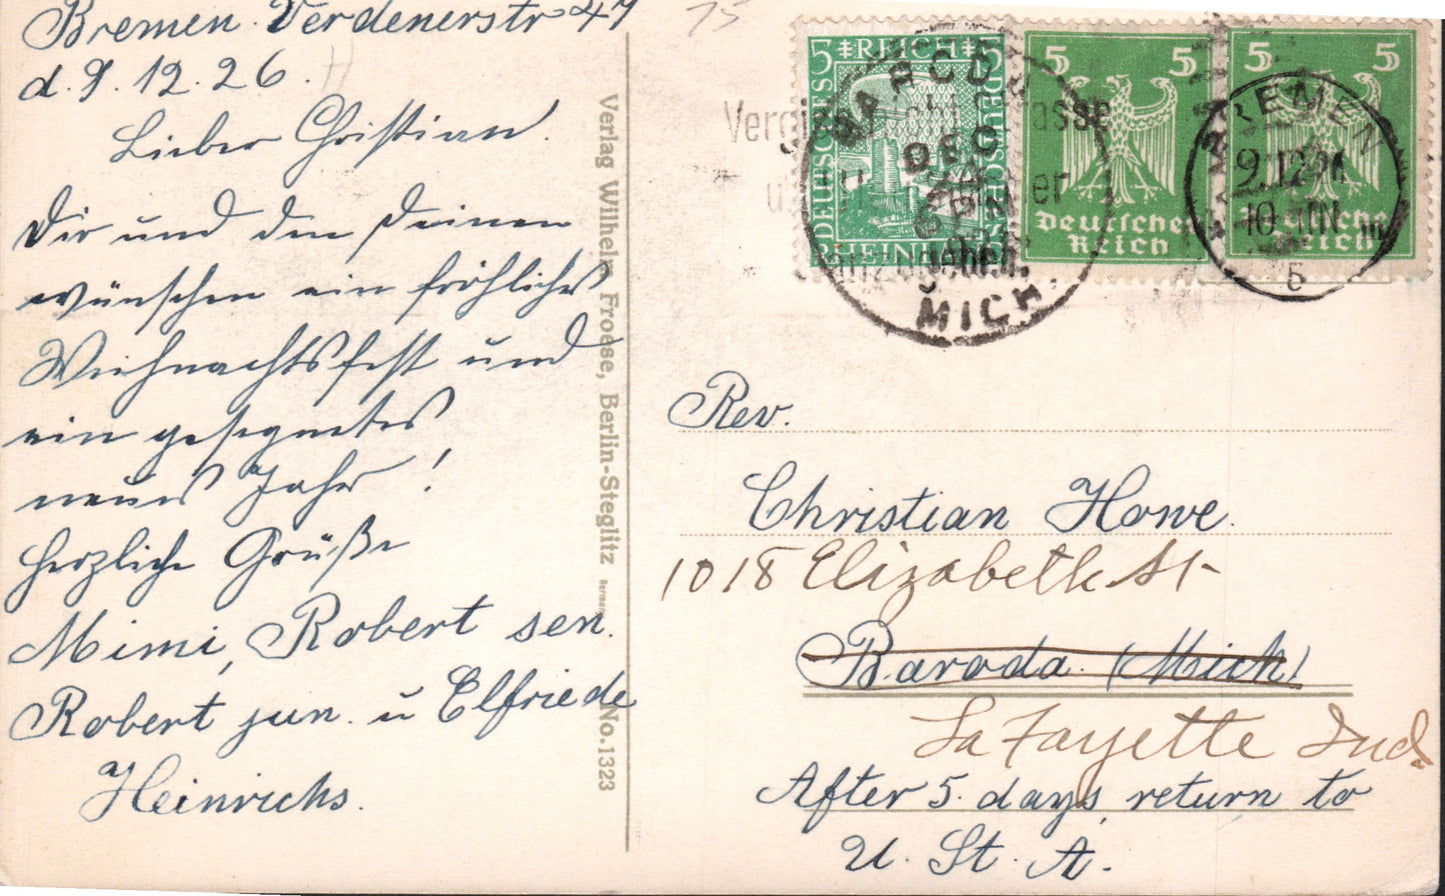 Bremen. Verdenerstr 49
d. 9. 12. 26.
Lieber Christian.
Dir und den Deinen
wünschen ein fröhliches
Weihnachtsfest und
ein gesegnetes
neues Jahr!
Herzliche Grüße
Mimi, Robert sen.
Robert jun. u Elfriede
Heinrichs.
Verlag Wilhelm Froese, Berlin-Steglitz
No. 1323
75
5 REICH 5
DEUTSCHES
DEUTSCHES
RHEINLAND
5 5
Deutsches
Reich
5 5
Deutsches
Reich
BARODA
DEC
MICH.
BREMEN
9.12.26
10-11N
5
Rev.
Christian Howe.
1018 Elizabeth St
Baroda (Mich)
LaFayette Ind.
After 5. days, return to
U. St. A.